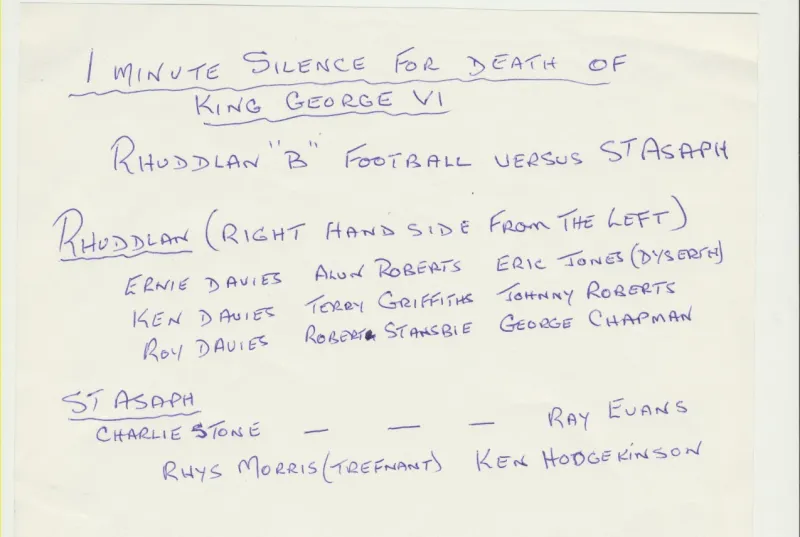 1 MINUTE SILENCE FOR DEATH OF
KING GEORGE VI
RHUDDLAN "B" FOOTBALL VERSUS ST ASAPH
RHUDDLAN (RIGHT HAND SIDE FROM THE LEFT)
ERNIE DAVIES ALUN ROBERTS ERIC JONES (DYSERTH)
KEN DAVIES TERRY GRIFFITHS JOHNNY ROBERTS
ROY DAVIES ROBERT STANSBIE GEORGE CHAPMAN
ST ASAPH
CHARLIE STONE — — — RAY EVANS
RHYS MORRIS (TREFNANT) KEN HODGEKINSON